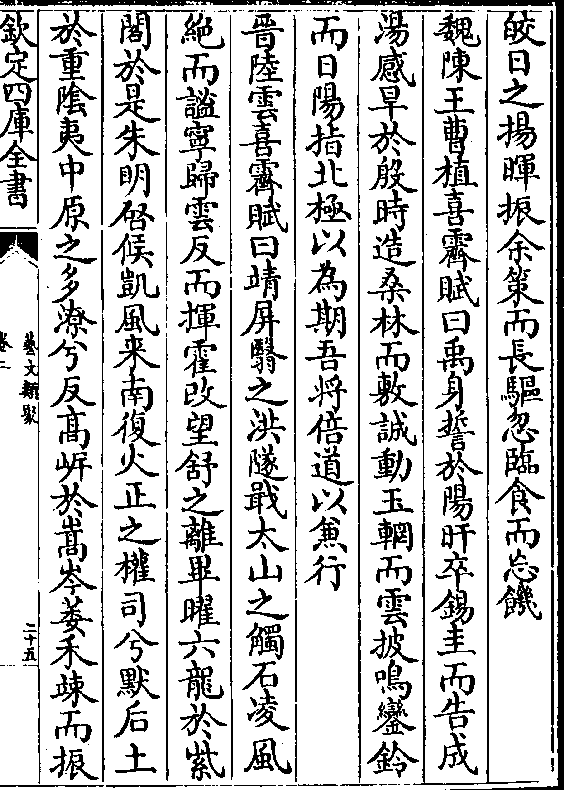 皎日之揚暉振余策而長驅忽臨食而忘饑
魏陳王曹植喜霽賦曰禹身誓於陽旰卒錫圭而告成
湯感旱於殷時造桑林而敷誠動玉輞而雲披鳴鑾鈴
而日陽指北極以為期吾将倍道以兼行
晉陸雲喜霽賦曰靖屏翳之洪隧戢太山之觸石凌風
絶而謐寧歸雲反而揮霍改望舒之離畢曜六龍於紫
閣於是朱明啓候凱風来南復火正之權司兮黙后土
於重陰夷中原之多潦兮反髙岸於嵩岑萎禾竦而振
欽定四庫全書
藝文類聚
卷二
二十五